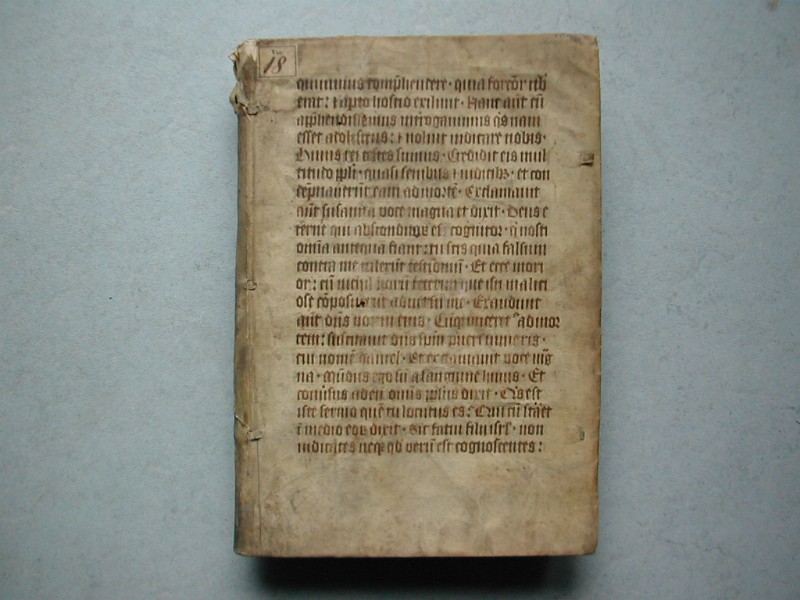 18
quiuimus comp̄hendere · quia forcōr nob̄
erat : ⁊ apto hostio exiliuit · Hanc aūt cū
app̄hendissemus īterogauimus q̄s nam
esset adolescens : ⁊ noluit indicare nobis ·
Huius rei testes sumus · Credidit eis mul
titudo pl̄i · quasi senibus ⁊ iudicibꝫ · et con
dēpnauerūt eam ad mortē · Exclamauit
aūt susanna uoce magna et dixit · Deus e
terne qui absconditoꝝ es cognitor · q̄ nosti
omīa antequa fiant : tu scis quia falsum
contra me tulerūt testīoniū · Et ecce mori
or : cū nichil horū fecerim que isti malici
ose cōposuerūt aduersū me · Exaudiuit
aūt dn̄s uocem eius · Cūq; duceret᷑ ad mor
tem : suscitauit dn̄s spm̄ pueri iunioris ·
cui nomē daniel · Et exclamauit uoce mag
na · Mūdus ego sū a sanguine huius · Et
conuersus ad eū omīs pl̄us dixit · Qis est
iste sermo quē tu locutus es : Qui cū staret
ī medio eoꝝ dixit · Sic fatui filii isrl̄ · non
iudicātes neq; qd̄ uerū est cognoscentes :